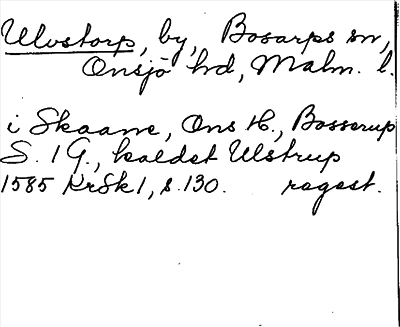 Ulvstorp, by, Bosarps sn,
Onsjö hd, Malm. l.
i Skaane, Ons H., Bosserup
S. 1 G., kaldet Ulstrup
1585 KrSk 1, s. 130. regest.